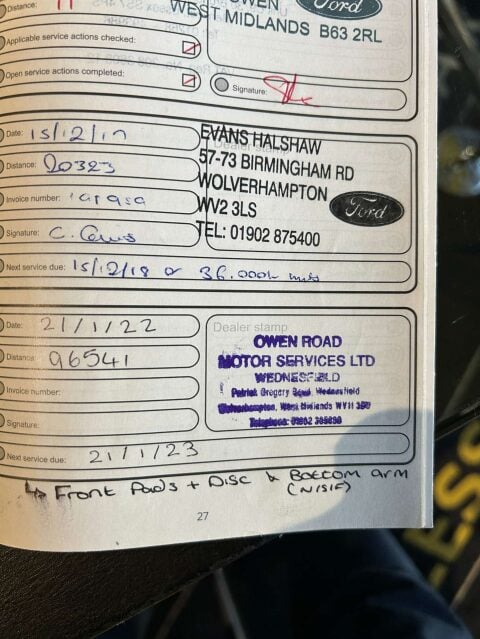 Distance:
OWEN
Ford
WEST MIDLANDS B63 2RL
Applicable service actions checked:
Open service actions completed:
Signature:
Date: 15/12/17
Dealer stamp
EVANS HALSHAW
57-73 BIRMINGHAM RD
WOLVERHAMPTON
WV2 3LS
TEL: 01902 875400
Ford
Distance: 20323
Invoice number:
Signature: C.
Next service due: 15/12/18 or 36.000
Date: 21/1/22
Dealer stamp
OWEN ROAD
MOTOR SERVICES LTD
WEDNESFIELD
Patrick Gregory Road, Wednesfield
Wolverhampton, West Midlands WV11 3DU
Telephone: 01902 305090
Distance: 96541
Invoice number:
Signature:
Next service due: 21/1/23
↳ Front Pads + Disc & Bottom arm
(N/S/F)
27